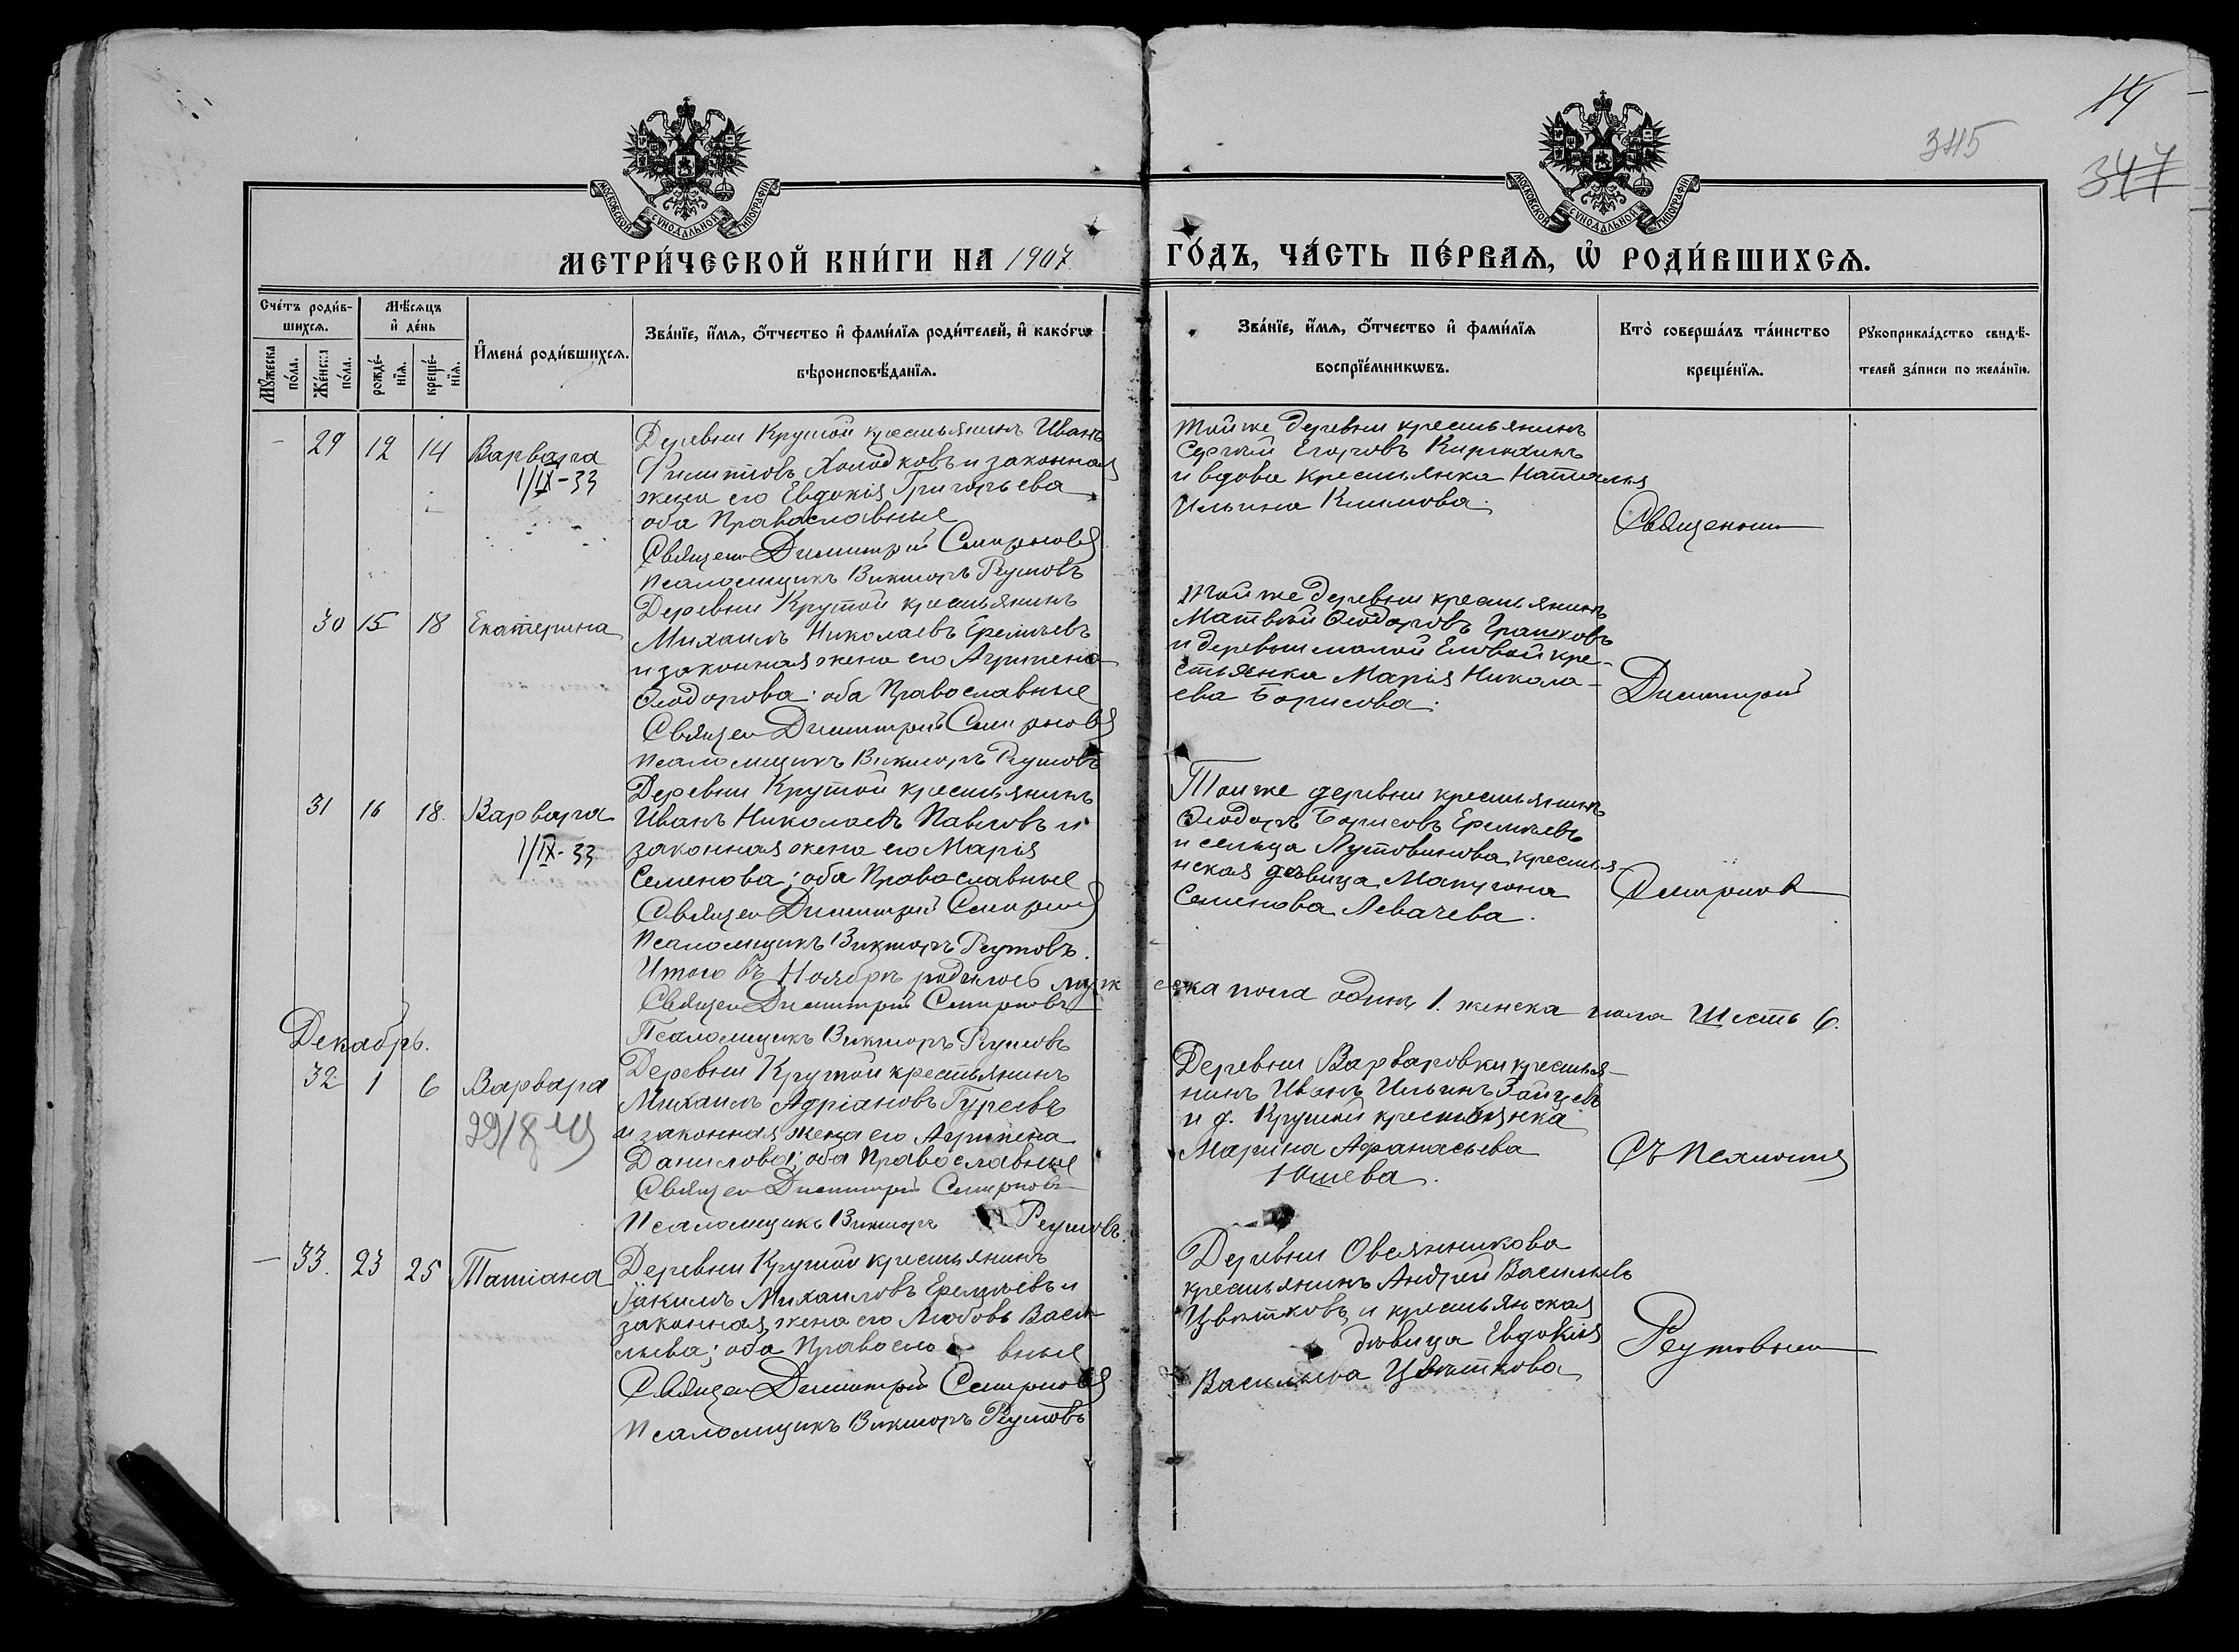 14
345
347
МОСКОВСКОЙ СУНОДАЛЬНОЙ ТИПОГРАФІИ
МОСКОВСКОЙ СУНОДАЛЬНОЙ ТИПОГРАФІИ
МЕТРИ́ЧЕСКОЙ КНИ́ГИ НА 1907 ГО́ДЪ, ЧА́СТЬ ПЕ́РВАѦ, Ѡ҆ РОДИ́ВШИХСѦ.
Сче́тъ роди́в-
шихсѧ.
Мѣ́сѧцъ
и҆ де́нь
Мꙋ́жеска
по́ла.
Же́нска
по́ла.
рожде́-
нїѧ.
креще́-
нїѧ.
И҆мена̀ роди́вшихсѧ.
Зва́нїе, и҆́мѧ, ѻ҆́тчество и҆ фами́лїѧ роди́телей, и҆ како́гѡ
вѣроисповѣ́данїѧ.
Зва́нїе, и҆́мѧ, ѻ҆́тчество и҆ фами́лїѧ
воспрїе́мникѡвъ.
Кто̀ соверша́лъ та́инство
креще́нїѧ.
Рꙋкоприкла́дство свидѣ́-
телей за́писи по жела́нїю.
- 29 12 14 Варвара
1/IX-33
Деревни Крутой крестьянинъ Иванъ
Филиповъ Холодковъ и законная
жена его Евдокія Григорьева
оба Православные
Священ Димитрій Смирновъ
Псаломщикъ Викторъ Реутовъ
той же деревни крестьянинъ
Сергѣй Егоровъ Кирюхинъ
и вдова крестьянка Наталья
Ильина Климова.
Священник
30 15 18 Екатерина
Деревни Крутой крестьянинъ
Михаилъ Николаевъ Еремѣевъ
и законная жена его Агрипена
Ѳеодорова: оба Православные
Священ Димитрій Смирновъ
Псаломщикъ Викторъ Реутовъ
той же деревни крестьянинъ
Матвѣй Ѳеодоровъ Грашковъ
и деревни малой Еловой кре-
стьянка Марія Никола-
ева Борисова.
Димитрій
31 16 18. Варвара
1/IX-33
Деревни Крутой крестьянинъ
Иванъ Николаевъ Павловъ и
законная жена его Марія
Семенова; оба Православные
Священ Димитрій Смирновъ
Псаломщикъ Викторъ Реутовъ.
Той же деревни крестьянинъ
Ѳеодоръ Борисовъ Еремѣевъ
и сельца Лутовинова крестья-
нская девица Матрона
Семенова Левачева.
Смирнов
Итого въ Ноябрѣ родилось мужеска пола одинъ 1. женска пола шесть 6.
Священ Димитрій Смирновъ
Псаломщикъ Викторъ Реутовъ
Декабрь.
32 1 6 Варвара
Деревни Крутой крестьянинъ
Михаилъ Адріановъ Гуреевъ
и законная жена его Агрипена
Данилова; оба Православные
Священ Димитрій Смирновъ
Псаломщикъ Викторъ Реутовъ.
Деревни Варваровки крестья-
нинъ Иванъ Ильинъ Зайцевъ
и д. Крутой крестьянка
Марина Афанасьева
Юшева.
Съ Псаломщ
- 33. 23 25 Татіана
Деревни Крутой крестьянинъ
Іакимъ Михаиловъ Еремѣевъ и
законная жена его Любовь Васи-
льева; оба Православные
Священ Димитрій Смирновъ
Псаломщикъ Викторъ Реутовъ
Деревни Овсянникова
крестьянинъ Андрей Васильевъ
Цвѣтковъ и крестьянская
дѣвица Евдокія
Васильева Цвѣткова
Реутовым